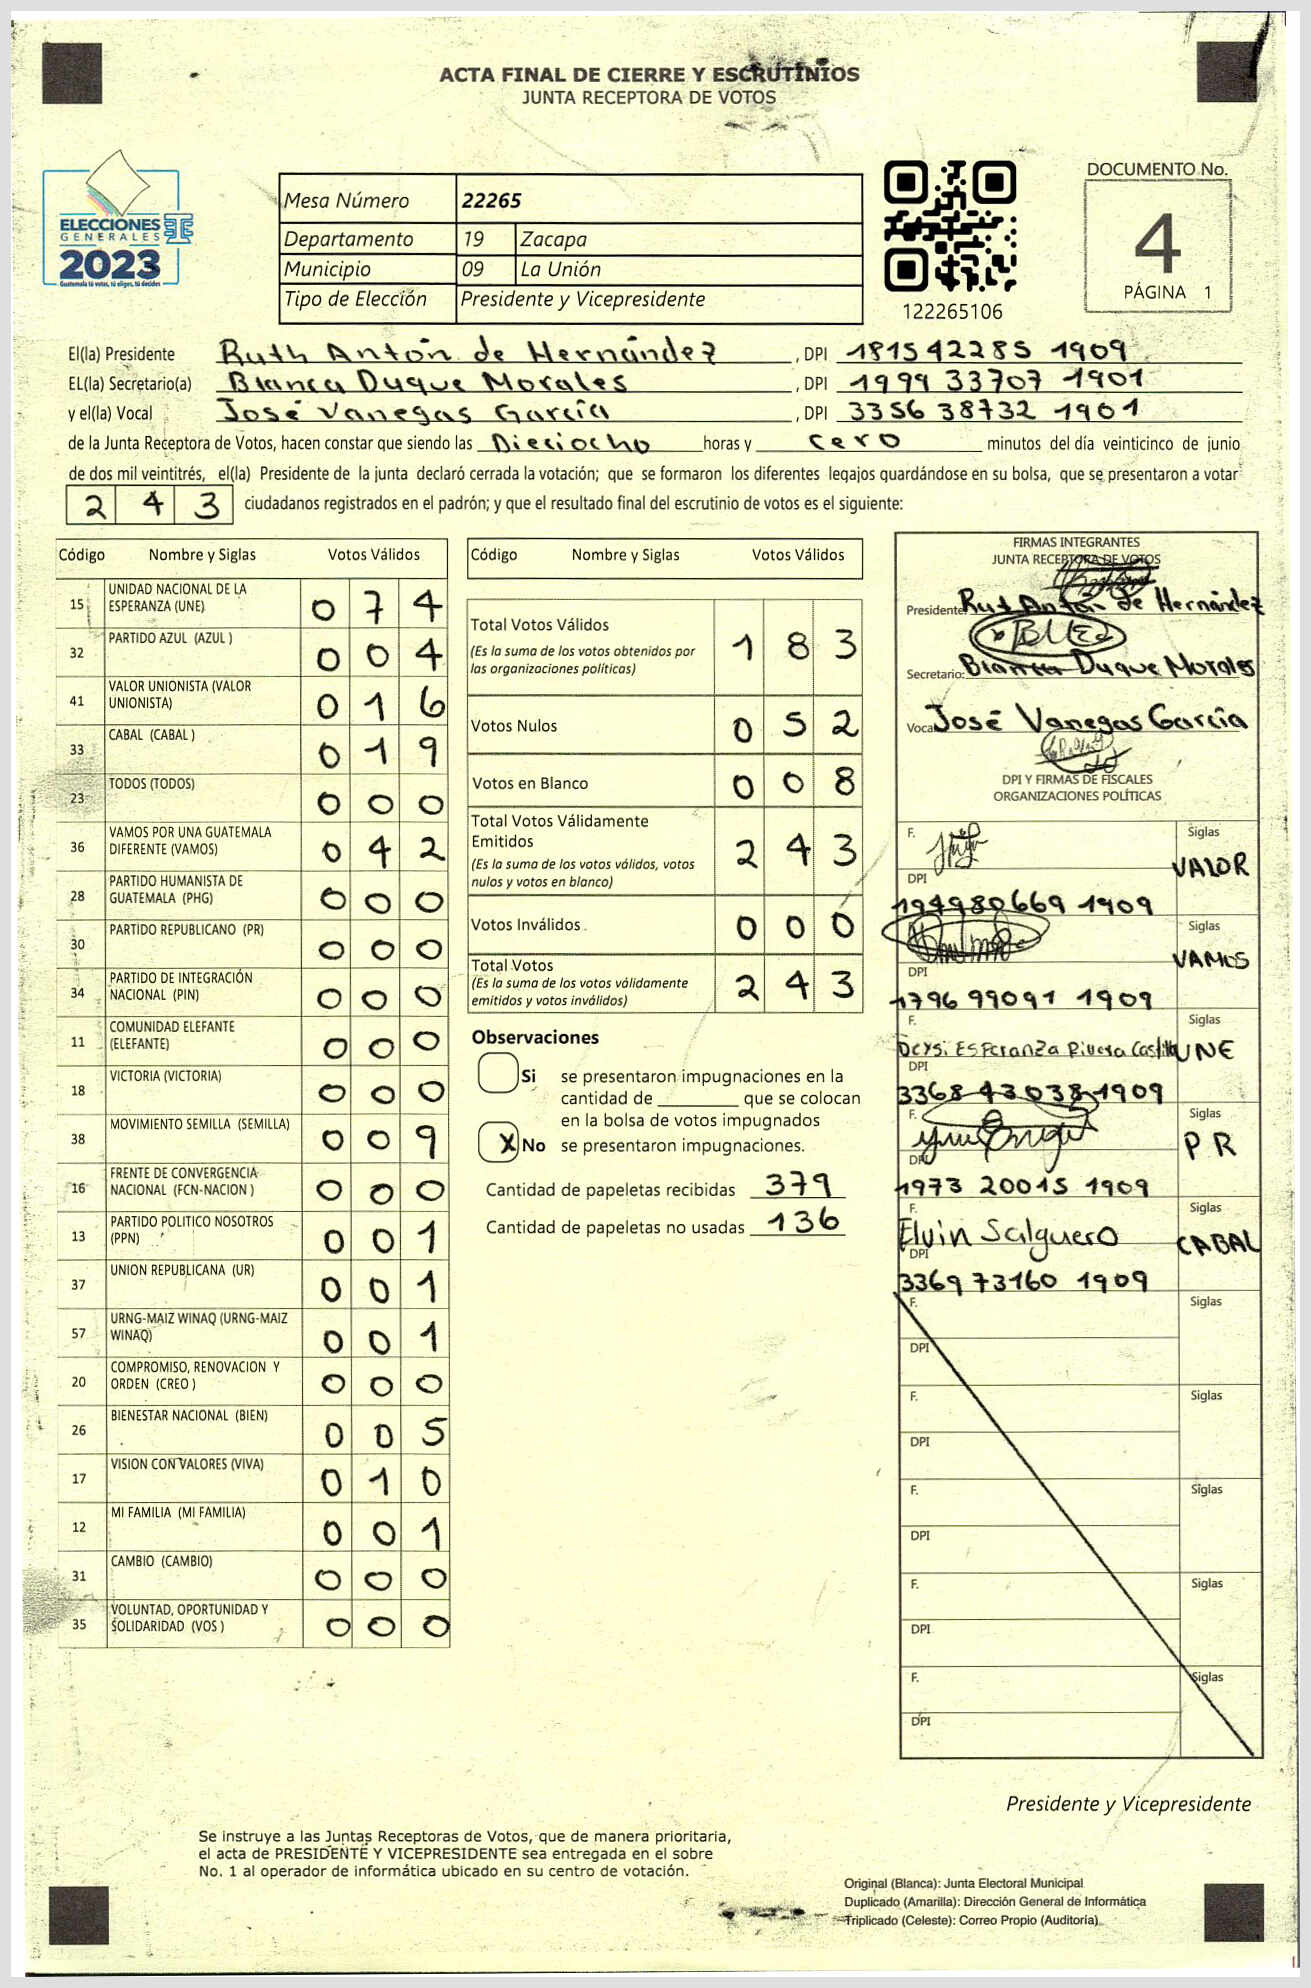 ACTA FINAL DE CIERRE Y ESCRUTINIOS
JUNTA RECEPTORA DE VOTOS
ELECCIONES
GENERALES
2023
Guatemala tú votas, tú eliges, tú decides
Mesa Número 22265
Departamento 19 Zacapa
Municipio 09 La Unión
Tipo de Elección Presidente y Vicepresidente
122265106
DOCUMENTO No.
4
PÁGINA 1
El(la) Presidente Ruth Antón de Hernández, DPI 181542285 1909
EL(la) Secretario(a) Blanca Duque Morales, DPI 1999 33707 1901
y el(la) Vocal José Vanegas García, DPI 3356 38732 1901
de la Junta Receptora de Votos, hacen constar que siendo las Dieciocho horas y cero minutos del día veinticinco de junio
de dos mil veintitrés, el(la) Presidente de la junta declaró cerrada la votación; que se formaron los diferentes legajos guardándose en su bolsa, que se presentaron a votar
243 ciudadanos registrados en el padrón; y que el resultado final del escrutinio de votos es el siguiente:
Código Nombre y Siglas Votos Válidos
15 UNIDAD NACIONAL DE LA ESPERANZA (UNE) 074
32 PARTIDO AZUL (AZUL ) 004
41 VALOR UNIONISTA (VALOR UNIONISTA) 016
33 CABAL (CABAL ) 019
23 TODOS (TODOS) 000
36 VAMOS POR UNA GUATEMALA DIFERENTE (VAMOS) 042
28 PARTIDO HUMANISTA DE GUATEMALA (PHG) 000
30 PARTIDO REPUBLICANO (PR) 000
34 PARTIDO DE INTEGRACIÓN NACIONAL (PIN) 000
11 COMUNIDAD ELEFANTE (ELEFANTE) 000
18 VICTORIA (VICTORIA) 000
38 MOVIMIENTO SEMILLA (SEMILLA) 009
16 FRENTE DE CONVERGENCIA NACIONAL (FCN-NACION ) 000
13 PARTIDO POLITICO NOSOTROS (PPN) 001
37 UNION REPUBLICANA (UR) 001
57 URNG-MAIZ WINAQ (URNG-MAIZ WINAQ) 001
20 COMPROMISO, RENOVACION Y ORDEN (CREO ) 000
26 BIENESTAR NACIONAL (BIEN) 005
17 VISION CON VALORES (VIVA) 010
12 MI FAMILIA (MI FAMILIA) 001
31 CAMBIO (CAMBIO) 000
35 VOLUNTAD, OPORTUNIDAD Y SOLIDARIDAD (VOS ) 000
Código Nombre y Siglas Votos Válidos
Total Votos Válidos 183
(Es la suma de los votos obtenidos por
las organizaciones políticas)
Votos Nulos 052
Votos en Blanco 008
Total Votos Válidamente
Emitidos 243
(Es la suma de los votos válidos, votos
nulos y votos en blanco)
Votos Inválidos 000
Total Votos 243
(Es la suma de los votos válidamente
emitidos y votos inválidos)
Observaciones
Si se presentaron impugnaciones en la
cantidad de ________ que se colocan
en la bolsa de votos impugnados
X No se presentaron impugnaciones.
Cantidad de papeletas recibidas 379
Cantidad de papeletas no usadas 136
FIRMAS INTEGRANTES
JUNTA RECEPTORA DE VOTOS
Presidente: Rut Antón de Hernández
Secretario: Blanca Duque Morales
Vocal José Vanegas García
DPI Y FIRMAS DE FISCALES
ORGANIZACIONES POLÍTICAS
F. Siglas
VALOR
DPI
194980669 1909
Siglas
VAMOS
DPI
1796 99091 1909
F. Siglas
Deysi Esperanza Rivera Castillo UNE
DPI
3368 43038 1909
F. Siglas
PR
DPI
1973 20015 1909
F. Siglas
Elvin Salguero CABAL
DPI
3369 73160 1909
F. Siglas
DPI
F. Siglas
DPI
F. Siglas
DPI
F. Siglas
DPI
F. Siglas
DPI
Presidente y Vicepresidente
Se instruye a las Juntas Receptoras de Votos, que de manera prioritaria,
el acta de PRESIDENTE Y VICEPRESIDENTE sea entregada en el sobre
No. 1 al operador de informática ubicado en su centro de votación.
Original (Blanca): Junta Electoral Municipal
Duplicado (Amarilla): Dirección General de Informática
Triplicado (Celeste): Correo Propio (Auditoría)